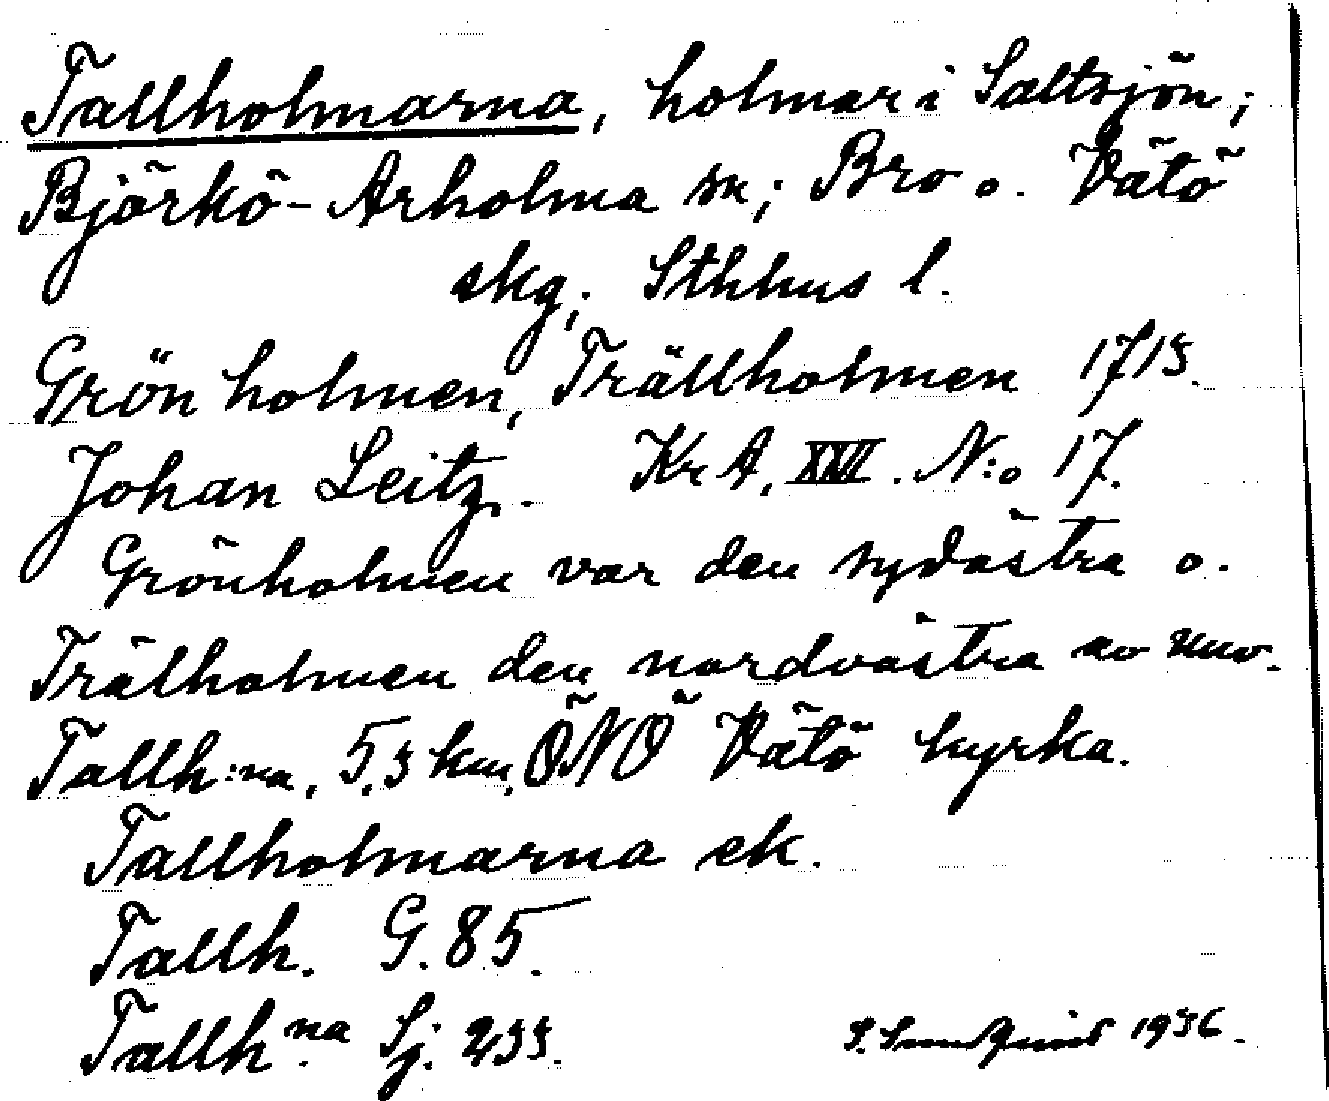 Tallholmarna, holmar i Saltsjön;
Björkö-Arholma sn; Bro o. Vätö
skg; Sthlms l.
Grönholmen, Trällholmen 1715.
Johan Leitz. Kr A, XXVI. N:o 17.
Grönholmen var den sydöstra o.
Trälholmen den nordvästra av nuv.
Tallh:na, 5,3 km, ÖNÖ Vätö kyrka.
Tallholmarna ek.
Tallh. G. 85.
Tallh:na Sj. 233. 1936.